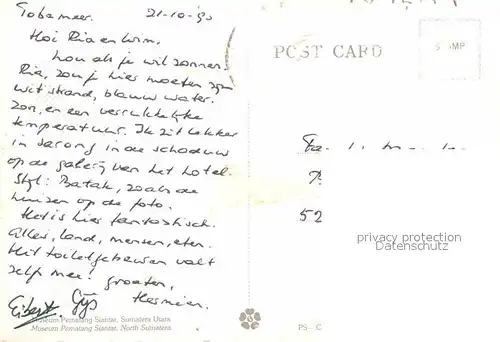 Tobameer. 21-10-90
Hoi Ria en Wim.
hou als je wil zonnen
Ria, zou je hier moeten zijn
wit strand, blauw water.
zon, en een verrukkelijke
temperatuur. Ik zit lekker
in sarong in de schaduw
op de galerij van het hotel.
Styl: Batak, zoals de
huizen op de foto.
Het is hier fantastisch.
Alles, land, mensen, eten.
Het toiletgebeuren valt
zelfs mee! groeten,
Gijs Hermien.
Museum Pematang Siantar, Sumatera Utara
Museum Pematang Siantar, North Sumatera
POST CARD
Fa.
52
privacy protection
PS - C